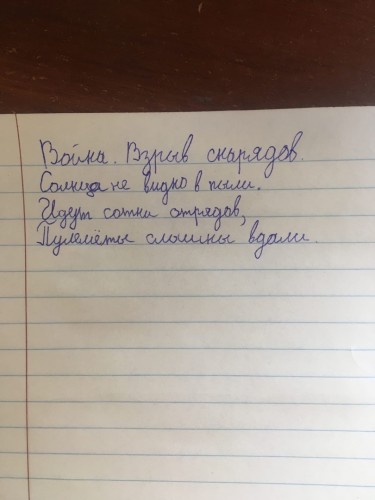 Война. Взрыв снарядов.
Солнца не видно в пыли.
Идут сотни отрядов,
Пулемёты слышны вдали.